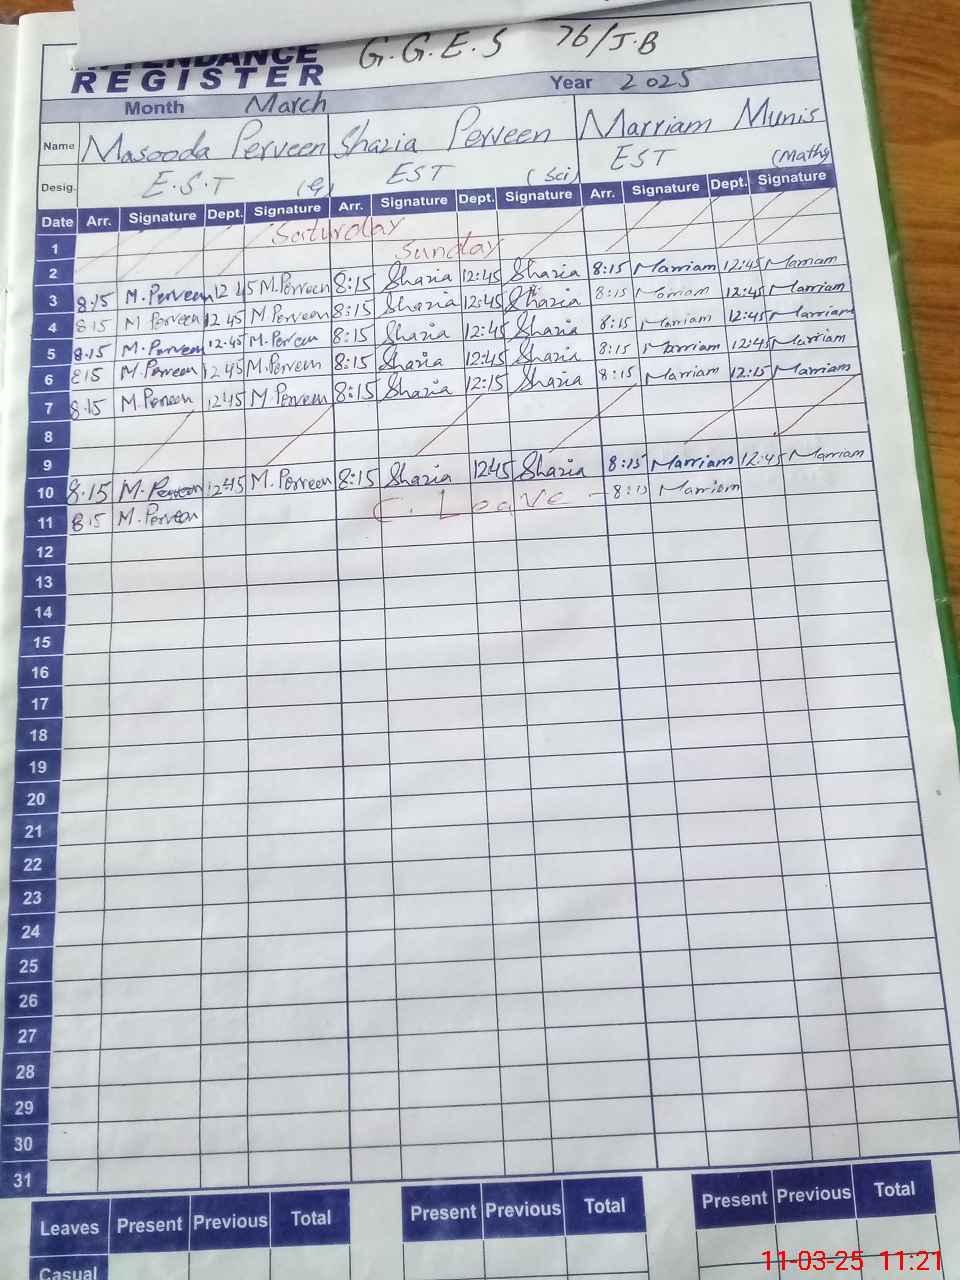 ATTENDANCE G.G.E.S 76/J.B
REGISTER
Month March Year 2025
Name Masooda Perveen Shazia Perveen Marriam Munis
Desig. E.S.T EST (Sci) EST (Maths)
Date Arr. Signature Dept. Signature Arr. Signature Dept. Signature Arr. Signature Dept. Signature
1 Saturday
2 Sunday
3 8:15 M.Perveen 12 45 M.Perveen 8:15 Shazia 12:45 Shazia 8:15 Marriam 12:45 Marriam
4 8 15 M Perveen 12 45 M Perveen 8:15 Shazia 12:45 Shazia 8:15 Marriam 12:45 Marriam
5 8.15 M.Perveen 12.45 M.Perveen 8:15 Shazia 12:45 Shazia 8:15 Marriam 12:45 Marriam
6 8 15 M.Perveen 12 45 M.Perveen 8:15 Shazia 12:45 Shazia 8:15 Marriam 12:45 Marriam
7 8.15 M.Perveen 12:15 M.Perveen 8:15 Shazia 12:15 Shazia 8:15 Marriam 12:15 Marriam
8
9
10 8.15 M.Perveen 12:45 M.Perveen 8:15 Shazia 12:45 Shazia 8:15 Marriam 12:45 Marriam
11 8.15 M.Perveen C. Leave 8:15 Marriam
12
13
14
15
16
17
18
19
20
21
22
23
24
25
26
27
28
29
30
31
Leaves Present Previous Total Present Previous Total Present Previous Total
Casual
11-03-25 11:21